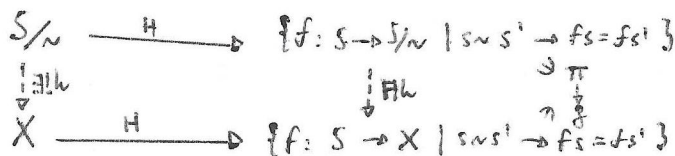 S/~ H {f: S → S/~ | s ~ s' → fs = fs'}
∃!h Hh ∋ π
X H {f: S → X | s ~ s' → fs = fs'}
∋ g